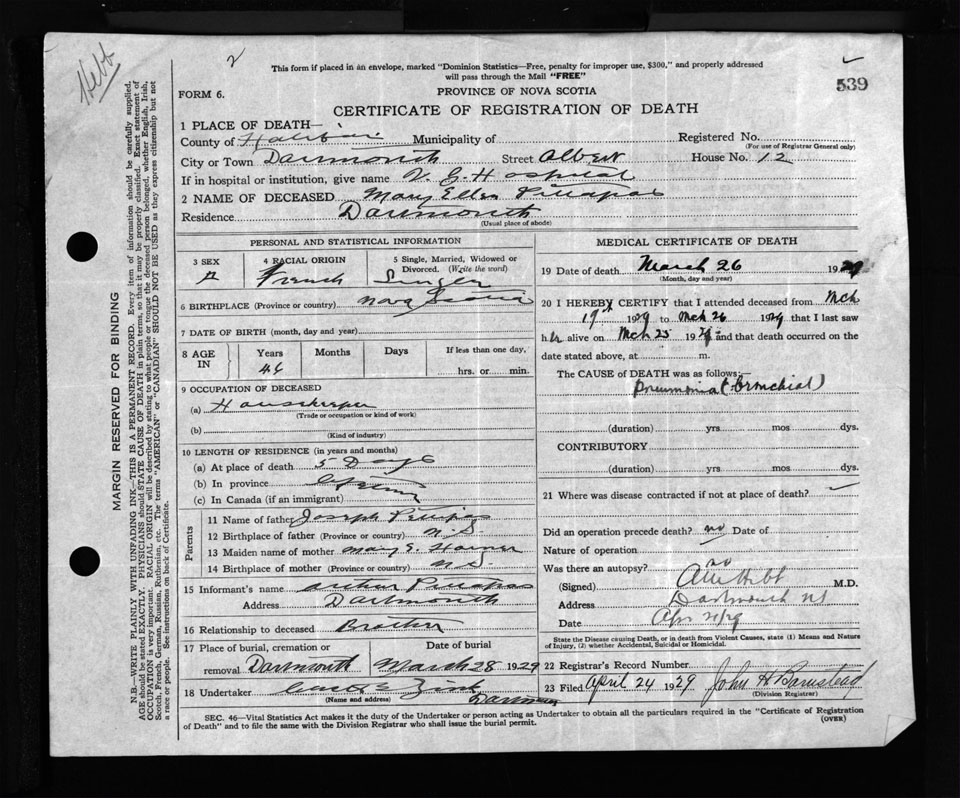 Hebb
2
This form if placed in an envelope, marked "Dominion Statistics—Free, penalty for improper use, $300," and properly addressed
will pass through the Mail "FREE"
539
FORM 6.
PROVINCE OF NOVA SCOTIA
CERTIFICATE OF REGISTRATION OF DEATH
1 PLACE OF DEATH—
County of Halifax Municipality of Registered No.
(For use of Registrar General only)
City or Town Dartmouth Street Albert House No. 12
If in hospital or institution, give name V. G. Hospital
2 NAME OF DECEASED Mary Ellen
Residence Dartmouth
(Usual place of abode)
PERSONAL AND STATISTICAL INFORMATION
3 SEX 4 RACIAL ORIGIN 5 Single, Married, Widowed or
Divorced. (Write the word)
French Single
6 BIRTHPLACE (Province or country) Nova Scotia
7 DATE OF BIRTH (month, day and year)
8 AGE IN Years Months Days If less than one day,
46 hrs. or min.
9 OCCUPATION OF DECEASED
(a) Housekeeper
(Trade or occupation or kind of work)
(b)
(Kind of industry)
10 LENGTH OF RESIDENCE (in years and months)
(a) At place of death 5 Days
(b) In province
(c) In Canada (if an immigrant)
Parents
11 Name of father Joseph
12 Birthplace of father (Province or country) N.S
13 Maiden name of mother Mary E.
14 Birthplace of mother (Province or country) N.S
15 Informant's name Arthur
Address Dartmouth
16 Relationship to deceased Brother
17 Place of burial, cremation or Date of burial
removal Dartmouth March 28 1929
18 Undertaker Zink
(Name and address) Dartmouth
MEDICAL CERTIFICATE OF DEATH
19 Date of death March 26 1929
(Month, day and year)
20 I HEREBY CERTIFY that I attended deceased from Mch
19th 1929 to Mch 26 1929 that I last saw
her alive on Mch 25 1929 and that death occurred on the
date stated above, at m.
The CAUSE OF DEATH was as follows:—
Pneumonia (Bronchial)
(duration) yrs mos dys.
CONTRIBUTORY
(duration) yrs mos dys.
21 Where was disease contracted if not at place of death?
Did an operation precede death? no Date of
Nature of operation
Was there an autopsy? no
(Signed) Hebb M.D.
Address Dartmouth NS
Date Apr 21/29
State the Disease causing Death, or in death from Violent Causes, state (1) Means and Nature
of Injury, (2) whether Accidental, Suicidal or Homicidal.
22 Registrar's Record Number
23 Filed April 24 1929 John H Barnstead
(Division Registrar)
SEC. 46—Vital Statistics Act makes it the duty of the Undertaker or person acting as Undertaker to obtain all the particulars required in the "Certificate of Registration
of Death" and to file the same with the Division Registrar who shall issue the burial permit.
(OVER)
MARGIN RESERVED FOR BINDING
N.B.—WRITE PLAINLY WITH UNFADING INK—THIS IS A PERMANENT RECORD. Every item of information should be carefully supplied.
AGE should be stated EXACTLY. PHYSICIANS should STATE CAUSE OF DEATH in plain terms, so that it may be properly classified. Exact statement of
OCCUPATION is very important. RACIAL ORIGIN will be described by stating to what people or tongue the deceased person belonged, whether English, Irish,
Scotch, French, German, Russian, Ruthenian, etc. The terms "AMERICAN" or "CANADIAN" SHOULD NOT BE USED as they express citizenship but not
a race or people. See instructions on back of Certificate.